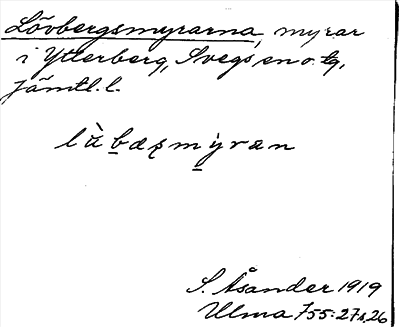 Lövbergsmyrarna, myrar
i Ytterberg, Svegs en o. tg,
jämtl. l.
làbæʂmỳran
S. Åsander 1919
Ulma 755:27 s. 26